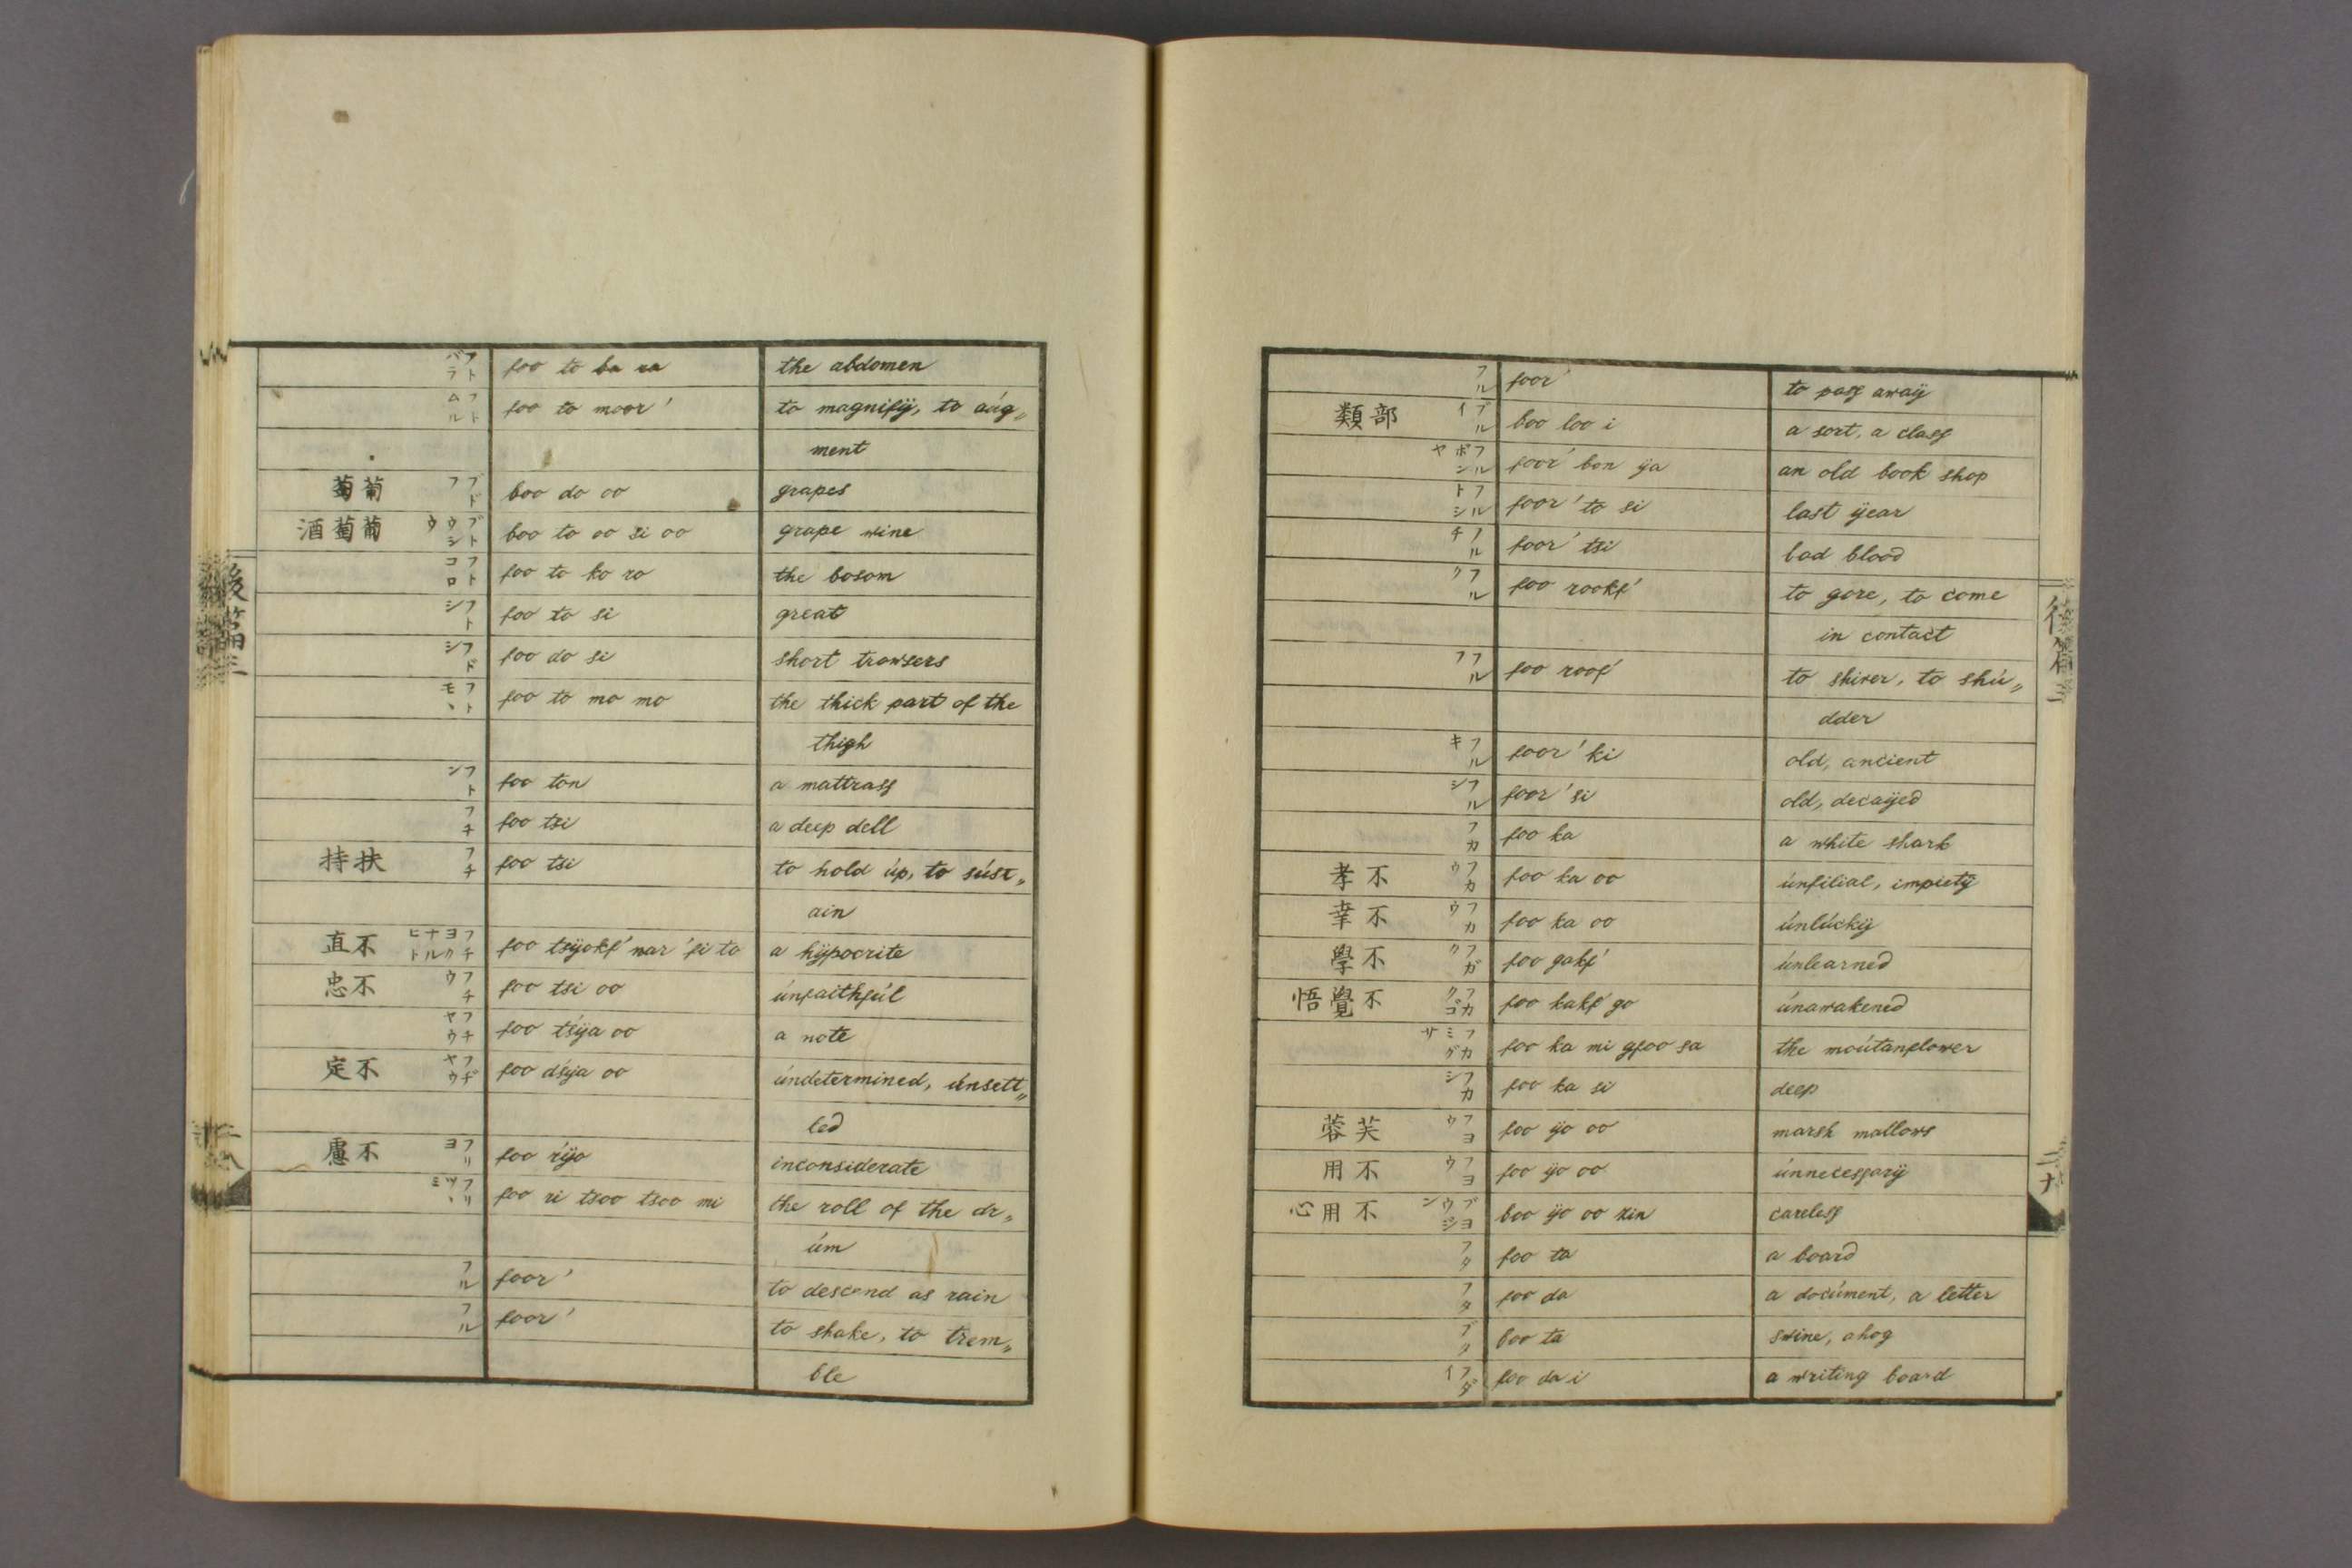 フトバラ foo to ba ra the abdomen
フトムル foo to moor' to magnifÿ, to aúg〃
ment
葡萄 ブドフ boo do oo grapes
葡萄酒 ブトウシウ boo to oo si oo grape wine
フトコロ foo to ko ro the bosom
フトシ foo to si great
フドシ foo do si short trowsers
フトモヽ foo to mo mo the thick part of the
thigh
フトン foo ton a mattrass
フチ foo tsi a deep dell
扶持 フチ foo tsi to hold úp, to súst〃
ain
不直 フチヨクナルヒト foo tsÿokf' nar' fi to a hÿpocrite
不忠 フチウ foo tsi oo únfaithfúl
フチヤウ foo tsÿa oo a note
不定 フヂヤウ foo dsÿa oo úndetermined, únsett〃
led
不慮 フリヨ foo rÿo inconsiderate
フリツヽミ foo ri tsoo tsoo mi the roll of the dr〃
úm
フル foor' to descend as rain
フル foor' to shake, to trem〃
ble
後篇三
二十八
フル foor' to pass awaÿ
部類 ブルイ boo loo i a sort, a class
フルボンヤ foor' bon ÿa an old book shop
フルトシ foor' to si last ÿear
フルチ foor' tsi bad blood
フルク foo rookf' to gore, to come
in contact
フルフ foo roof' to shiver, to shú〃
dder
フルキ foor' ki old, ancient
フルシ foor' si old, decaÿed
フカ foo ka a white shark
不孝 フカウ foo ka oo únfilial, impietÿ
不幸 フカウ foo ka oo únlúckÿ
不學 フガク foo gakf' únlearned
不覺悟 フカクゴ foo kakf' go únawakened
フカミグサ foo ka mi gfoo sa the moútanflower
フカシ foo ka si deep
芙蓉 フヨウ foo ÿo oo marsh mallows
不用 フヨウ foo ÿo oo únnecessarÿ
不用心 ブヨウジン boo ÿo oo zin careless
フタ foo ta a board
フダ foo da a docúment, a letter
ブタ boo ta swine, a hog
フダイ foo da i a writing board
後篇三
二十九